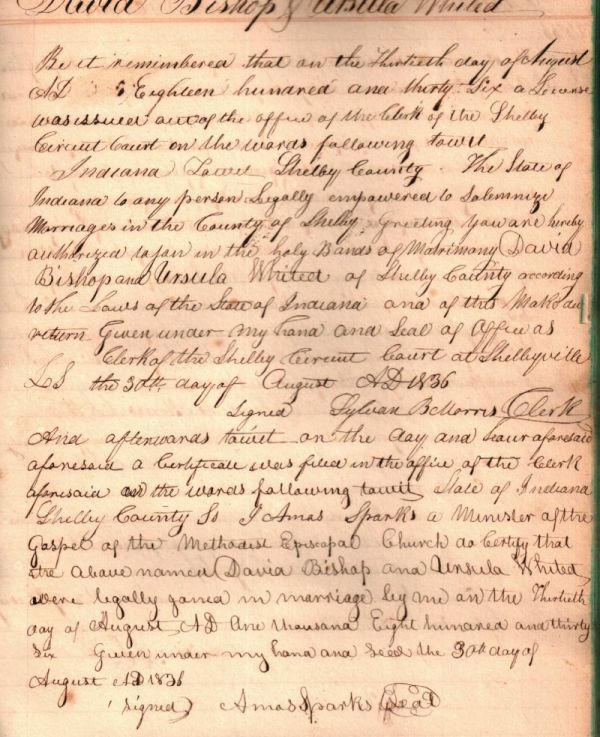 David Bishop & Ursula Whited
Be it remembered that on the Thirtieth day of August
AD Eighteen hundred and thirty Six a License
was issued out of the office of the Clerk of the Shelby
Circuit Court on the words following towit
Indiana Towit Shelby County The State of
Indiana to any person Legally empowered to Solemnize
Marriages in the County of Shelby Greeting You are hereby
authorized to join in the holy Bands of Matrimony David
Bishop and Ursula Whited of Shelby County according
to the Laws of the State of Indiana and of this Make due
return Given under my hand and Seal of Office as
Clerk of the Shelby Circuit Court at Shelbyville
LS the 30th day of August AD 1836
Signed Sylvan B Morris Clerk
And afterwards towit on the day and hour aforesaid
aforesaid a Certificate was filed in the office of the Clerk
aforesaid in the words following towit State of Indiana
Shelby County Ss I Amos Sparks a Minister of the
Gospel of the Methodist Episcopal Church do Certify that
the above named David Bishop and Ursula Whited
were legally joined in marriage by me on the Thirtieth
day of August AD One thousand Eight hundred and thirty
Six Given under my hand and Seal the 30th day of
August AD 1836
(signed) Amos Sparks Seal